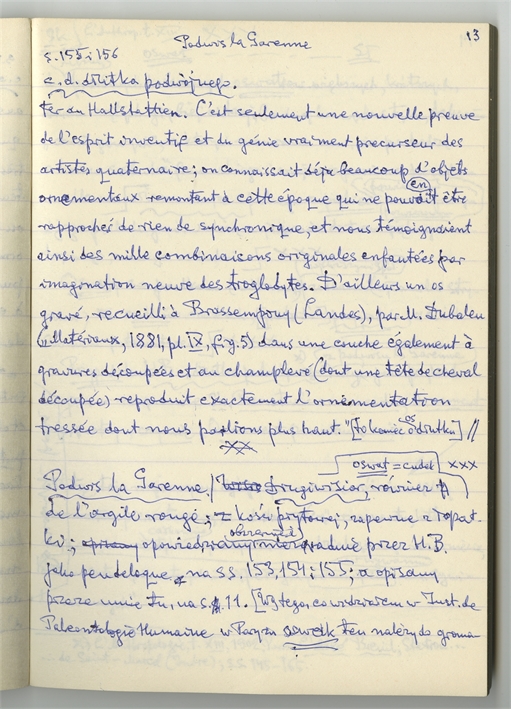 13
Podwis la Garenne
s. 155 i 156
c. d. druku podwójnego.
fer du Hallstattien. C'est seulement une nouvelle preuve
de l'esprit inventif et du génie vraiment precurseur des
artistes quaternaire; on connaissait déja beaucoup d'objets
ornementaux remontant à cette époque qui ne pouvait être
en
rapprochés de rien de synchronique, et nous témoignaient
ainsi des mille combinaisons originales enfantées par
imagination neuve des troglodytes. D'ailleurs un os
gravé, recueilli à Brassempouy (Landes), par M. Dubalen
(„Matériaux, 1881, pl. IX, fig. 5) dans une couche également à
gravures découpées et au champlevé (dont une tête de cheval
découpée) reproduit exactement l'ornementation
tressée dont nous parlions plus haut." [to koniec druku] //
xxx
oswat = cudek xxx
Podwis la Garenne. / drugi wisior, również
de l'argile rouge; z kości płytowej, zapewne z łopat-
ki; opowiedziany przez H. B.
jeho pendeloque, na ss. 153, 154 i 155; a opisany
przeze mnie tu, na s. 11. [z tego, co widziałem w Inst. de
Paleontologie Humaine w Paryżu ten należy do gromu